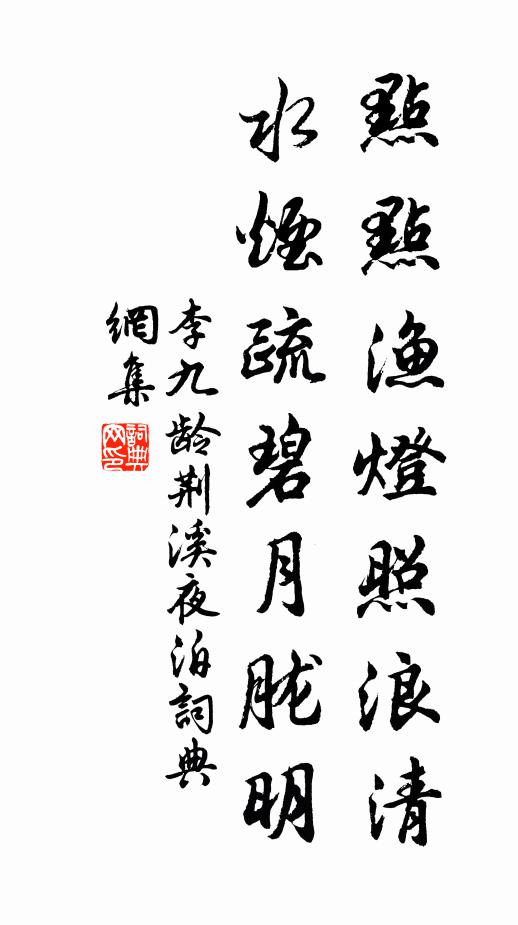 點點漁燈照浪清
水煙疏碧月朧明
李九齡荆溪夜泊詞典
網集
詞典網印